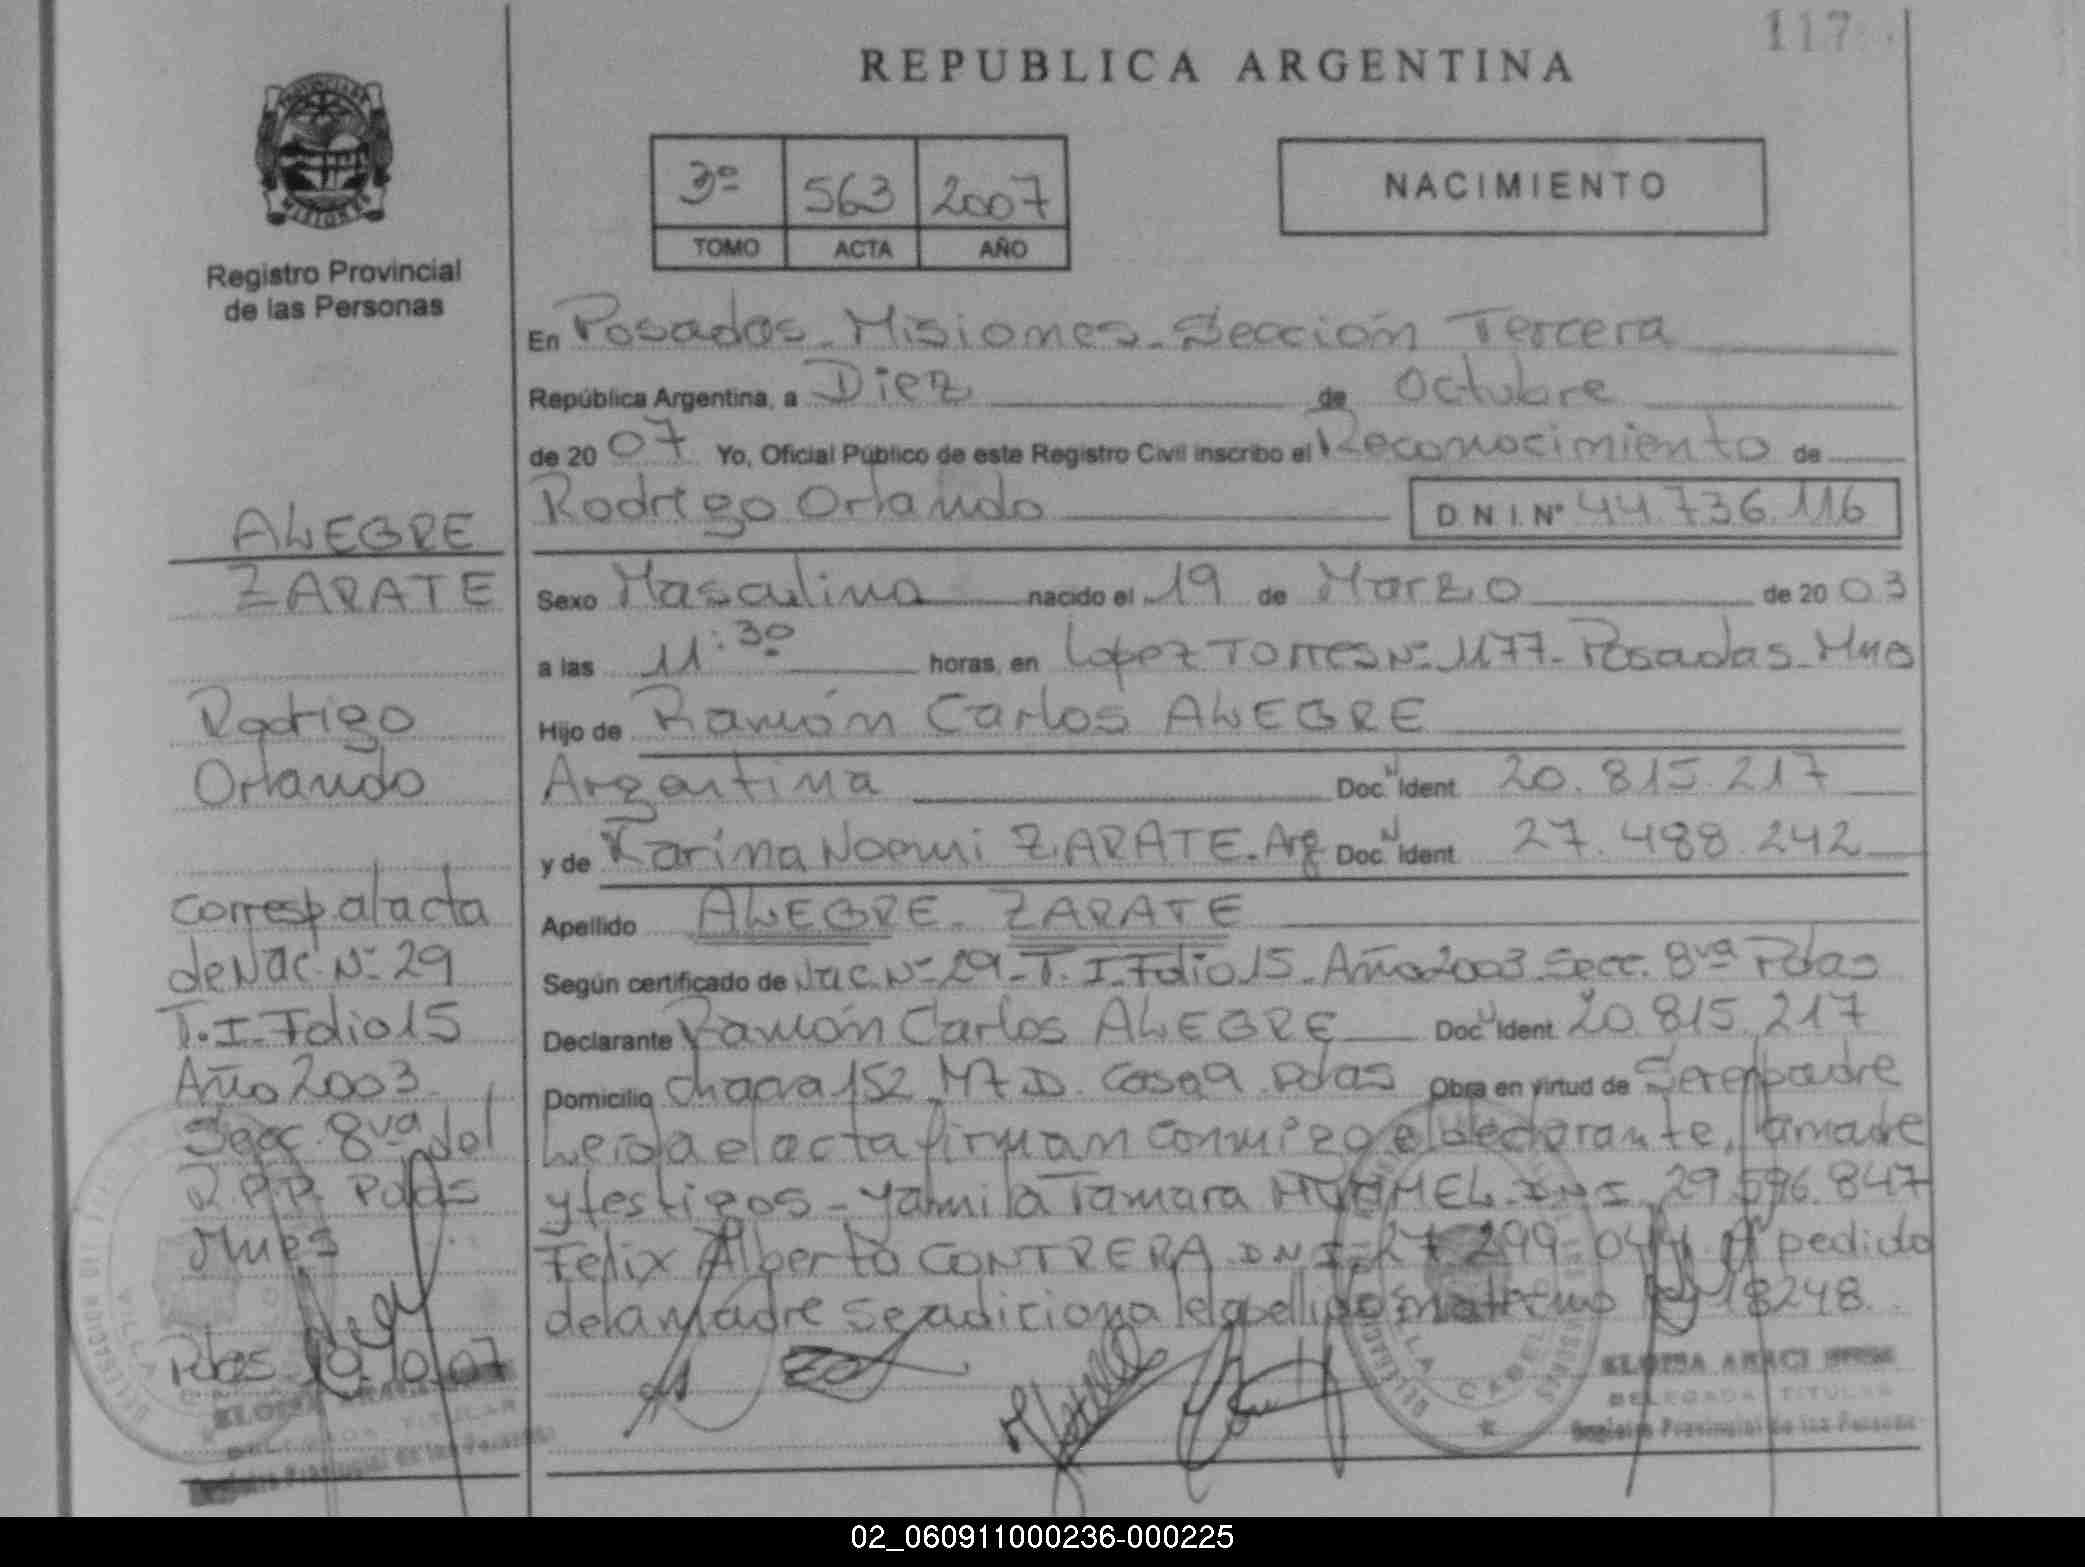 117
REPUBLICA ARGENTINA
PROVINCIA DE MISIONES
Registro Provincial
de las Personas
3º 563 2007
TOMO ACTA AÑO
NACIMIENTO
En Posadas - Misiones - Sección Tercera
República Argentina, a Diez de Octubre
de 2007 Yo, Oficial Público de este Registro Civil inscribo el Reconocimiento de
Rodrigo Orlando D N I. Nº 44.736.116
Sexo Masculino nacido el 19 de Marzo de 2003
a las 11:30 horas, en Lopez Torres Nº 1177 - Posadas - Mnes
Hijo de Ramón Carlos ALEGRE
Argentina Doc. N Ident. 20.815.217
y de Karina Noemi ZARATE - Arg Doc. N Ident. 27.488.242
Apellido ALEGRE - ZARATE
Según certificado de Nac. Nº 29 - T. I - Folio 15 - Año 2003 Secc. 8va Pdas
Declarante Ramón Carlos ALEGRE Doc. N Ident. 20.815.217
Domicilio Chacra 152 M7 D. Casa 9 Pdas Obra en virtud de Ser el padre
Leida el acta firman conmigo el declarante, la madre
y testigos - Yamila Tamara HUMMEL - DNI 29.596.847
Felix Alberto CONTRERA DNI 27.299.044 A pedido
de la madre se adiciona el apellido materno Ley 18248.
ALEGRE
ZARATE
Rodrigo
Orlando
corresp. al acta
de Nac. Nº 29
T. I - Folio 15
Año 2003.
Secc. 8va del
R.P.P. Pdas
Mnes
Pdas. 10.10.07
DELEGADA TITULAR
Registro Provincial de las Personas
ELOISA ARACI
DELEGADA TITULAR
Registro Provincial de las Personas
VILLA CABELLO
02_060911000236-000225